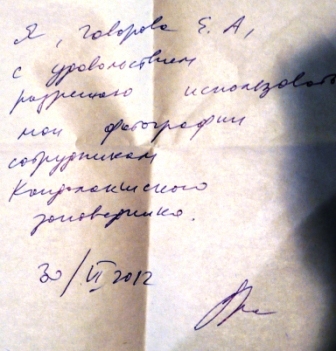 Я, Говорова Е. А,
с удовольствием
разрешаю использовать
мои фотографии
сотрудникам
Кандалакшского
заповедника.
30/VI 2012